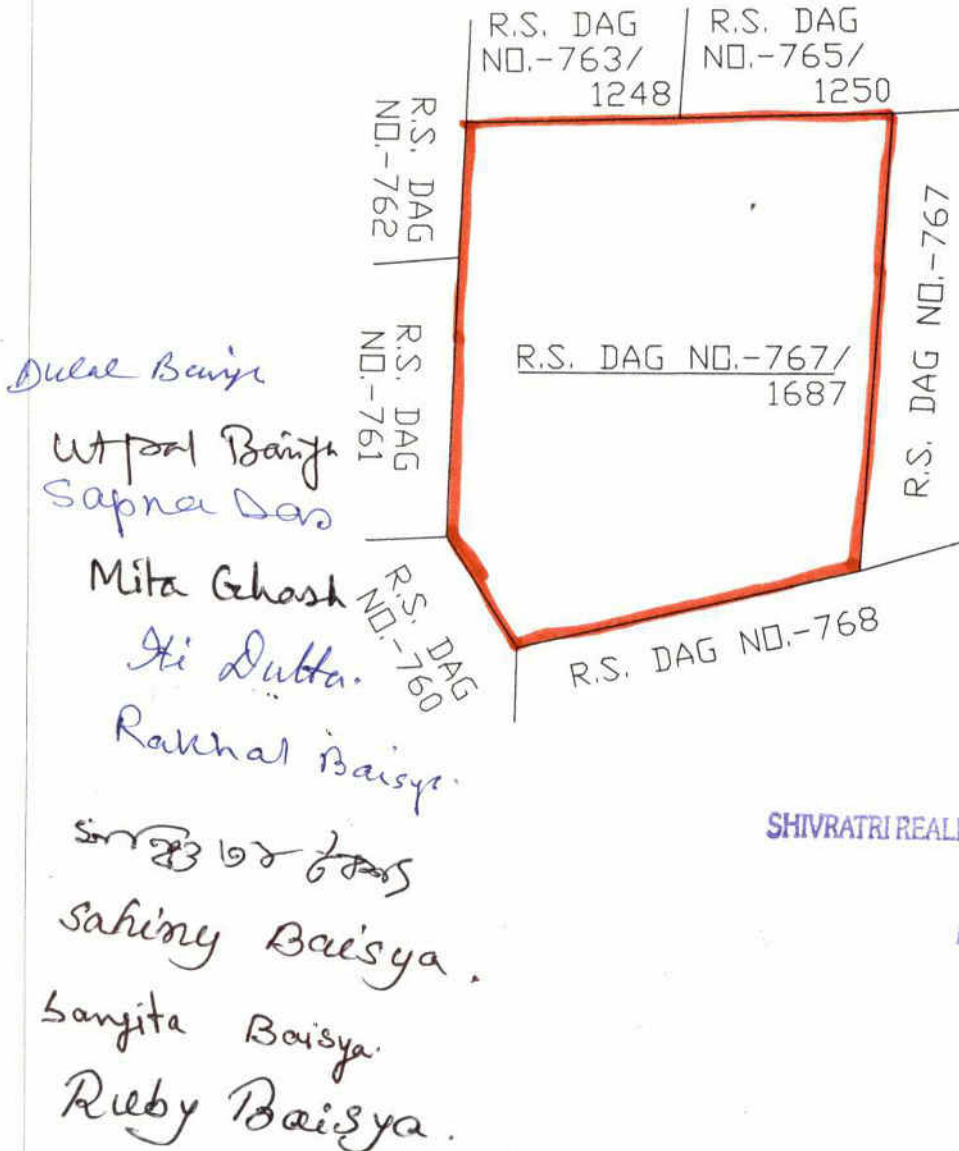 R.S. DAG
NO.-763/
1248
R.S. DAG
NO.-765/
1250
R.S. DAG
NO.-762
R.S. DAG
NO.-761
R.S. DAG NO.-767/
1687
R.S. DAG NO.-767
R.S. DAG
NO.-760
R.S. DAG NO.-768
Dulal
Utpal
Sapna Das
Mita Ghosh
Dutta.
Rakhal Baisya.
SHIVRATRI
Sahiny Baisya.
Sangita Baisya.
Ruby Baisya.